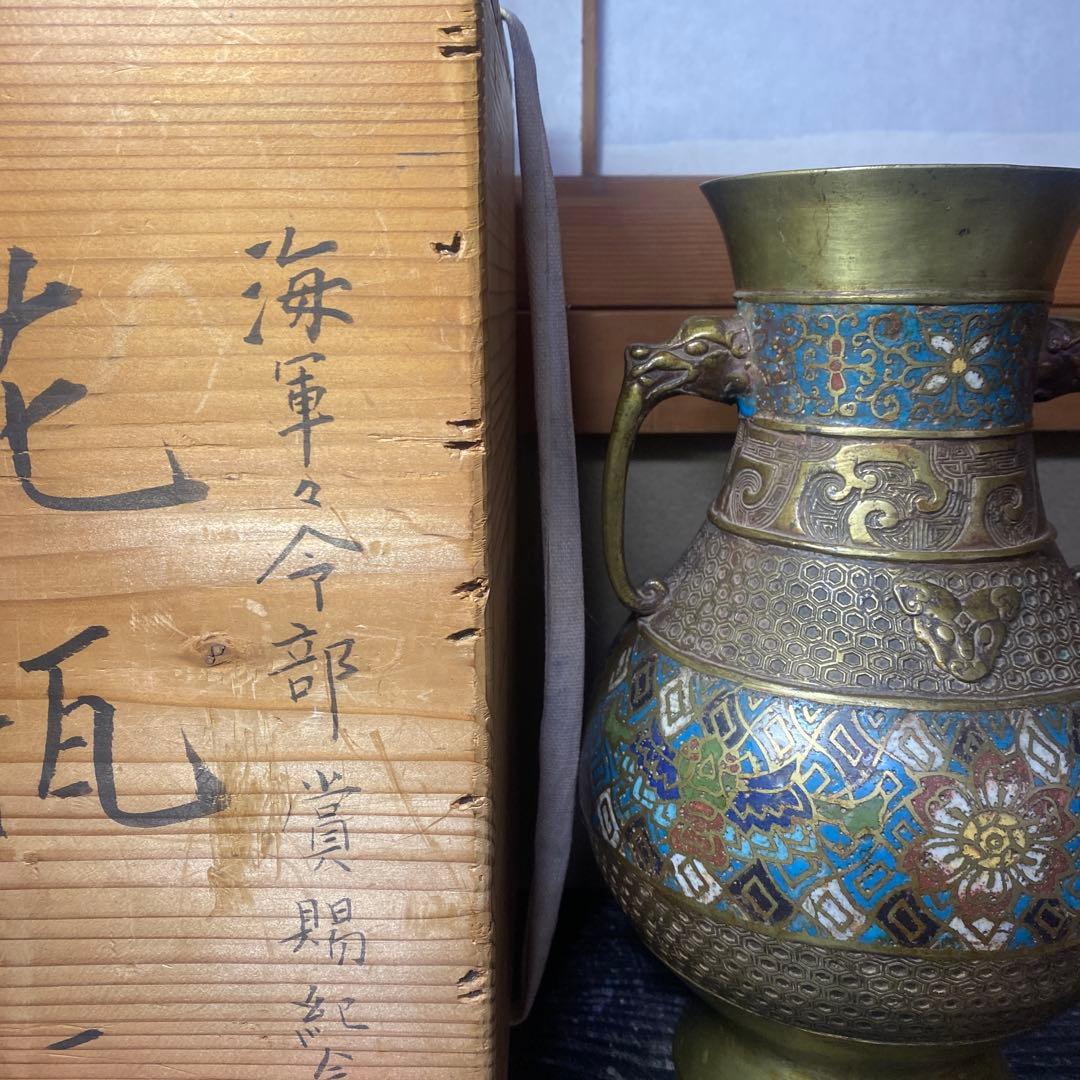 海軍々令部賞賜紀念
花瓶一